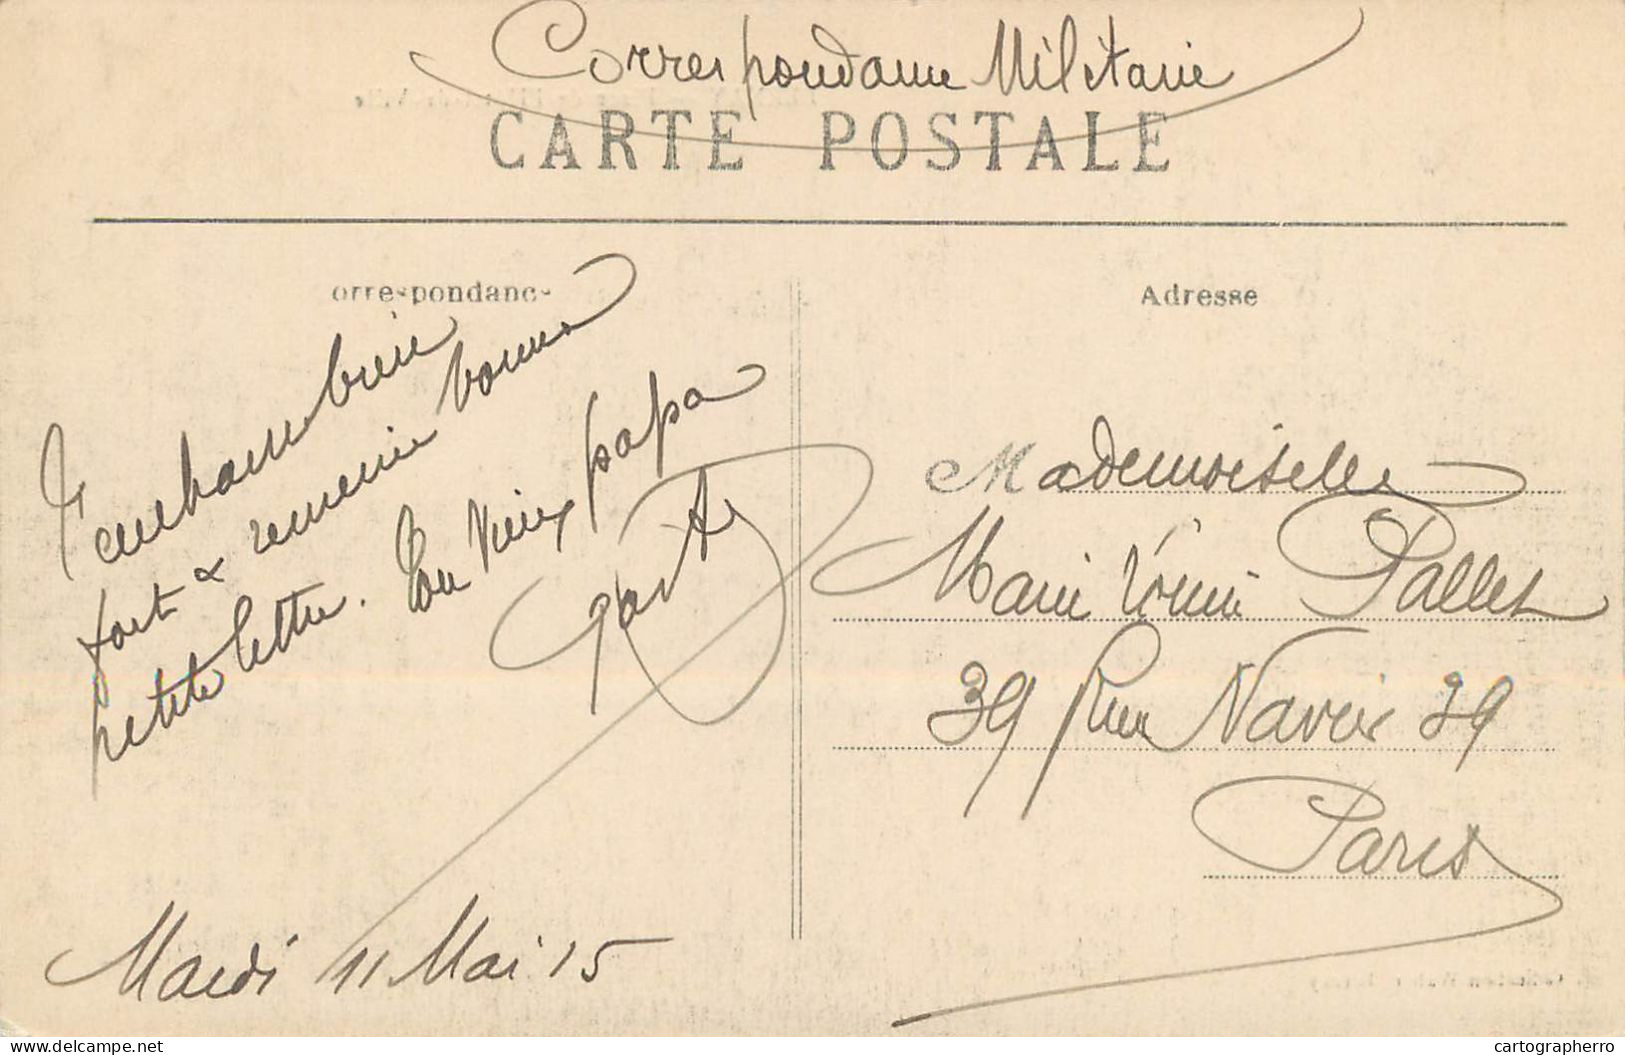 Correspondance Militaire
CARTE POSTALE
orrespondanc
Adresse
T'embrasse bien
fort & remercie bonne
petite lettre. Ton vieux papa
Mardi 11 Mai 15
Mademoiselle
Marie Pallet
39 Rue Navier 39
Paris
www.delcampe.net
cartographerro